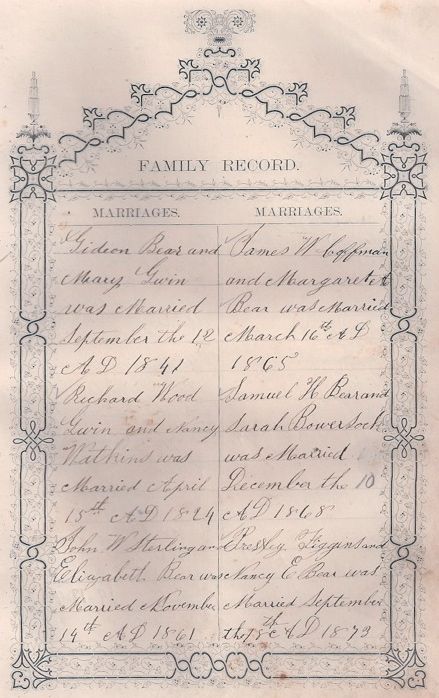 FAMILY RECORD.
MARRIAGES.
Gideon Bear and
Mary Gwin
was Married
September the 12
AD 1841
Richard Wood
Gwin and Nancy
Watkins was
Married April
15th AD 1824
John W Sterling and
Elizabett Bear was
Married November
14th AD 1861
MARRIAGES.
James W Coffman
and Margaret A
Bear was Married
March 16th AD
1865
Samuel H Bear and
Sarah Bowersock
was Married
December the 10
AD 1868
Presley Figgins and
Nancy E Bear was
Married September
the 18th AD 1873